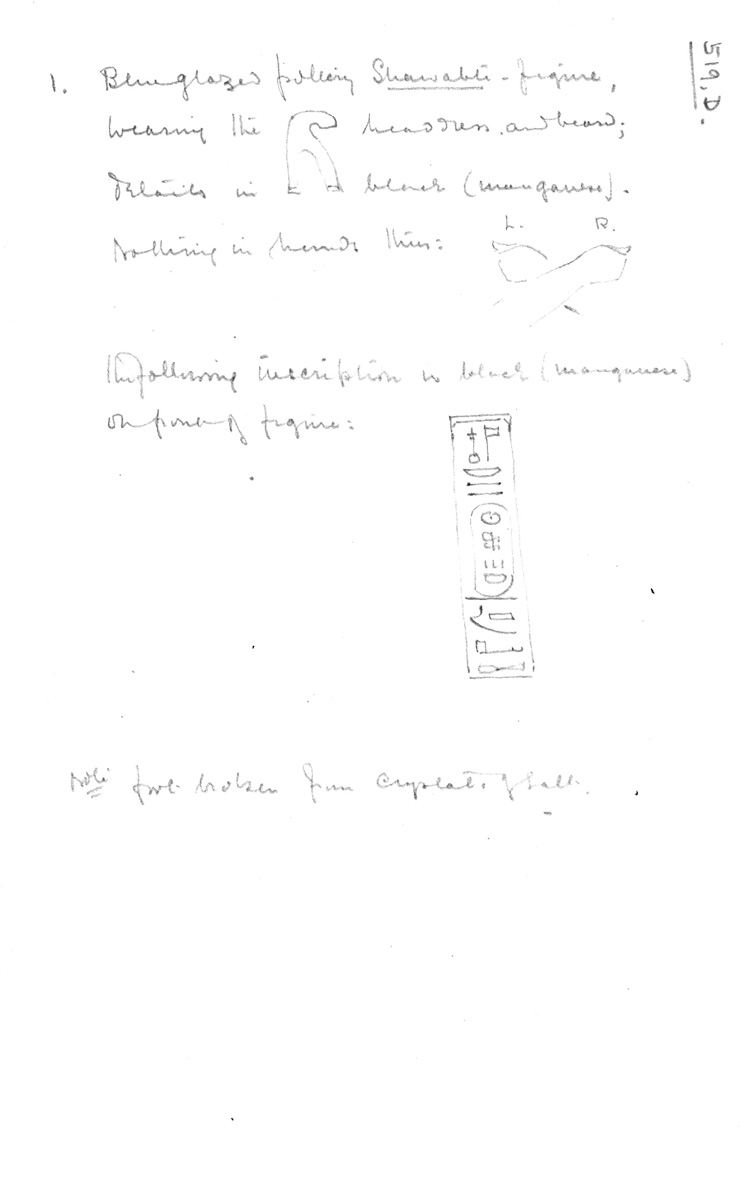 519, D.
1. Blue glazed pottery Shawabti-figure,
wearing the headdress, and beard;
Details in black (manganese).
L. R.
Nothing in hands thus:
The following inscription in black (manganese)
on front of figure:
Note foot broken from crystals of salt.